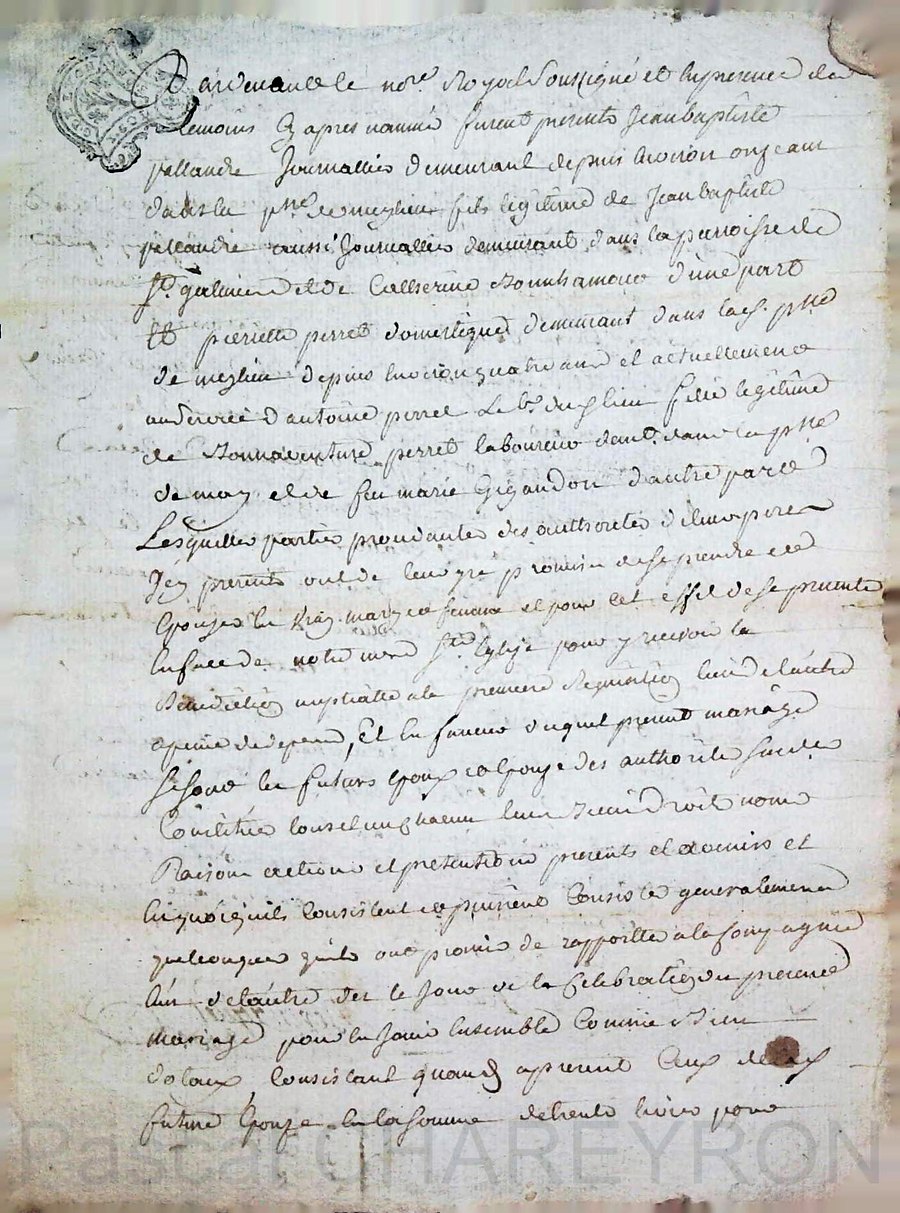 Pardevant le nore Royal Soussigné et en presence des
temoins cy apres nommé furent presents Jean baptiste
pallandre Journallier demeurant depuis environ onze ans
dans la pnse de meylieu fils legitime de Jean baptiste
pallandre aussi Journallier demeurant dans la parroisse de
St. galmier et de Catherine d'une part
Et pierrette perret domestique demeurant dans lad. pnse
de meylieu depuis environ quatre ans et actuellement
au service d'antoine perret dud. lieu fille legitime
de Bonnaventure perret laboureur demt. dans la pnse
de et de feu marie Gigandon d'autre part
Lesquelles parties procedantes des authorités de leurs peres
Icy presents ont de leur gré promis de se prendre et
Epouzer en vray mary et femme et pour cet effet de se presenter
En face de notre mere Ste Eglize pour y recevoir la
Benediction nuptialle a la premiere Requisition l'un de l'autre
a peine de depens, Et en faveur duquel present mariage
Se sont les futurs Epoux et Epouze des authorités susdes
Constitué tous et un chacun leurs Biens Droits noms
Raisons actions et pretentions presents et avenirs et
En quoi qu'ils consistent et puissent consister generallement
quelconques quils ont promis de rapporter a la Compagnie
l'un de l'autre des le Jour de la Celebration du present
mariage pour en Jouir Ensemble Comme Biens
dotaux Consistant quand a present Ceux de lad.
future Epouze en la somme de trente livres pour
Pascal CHAREYRON